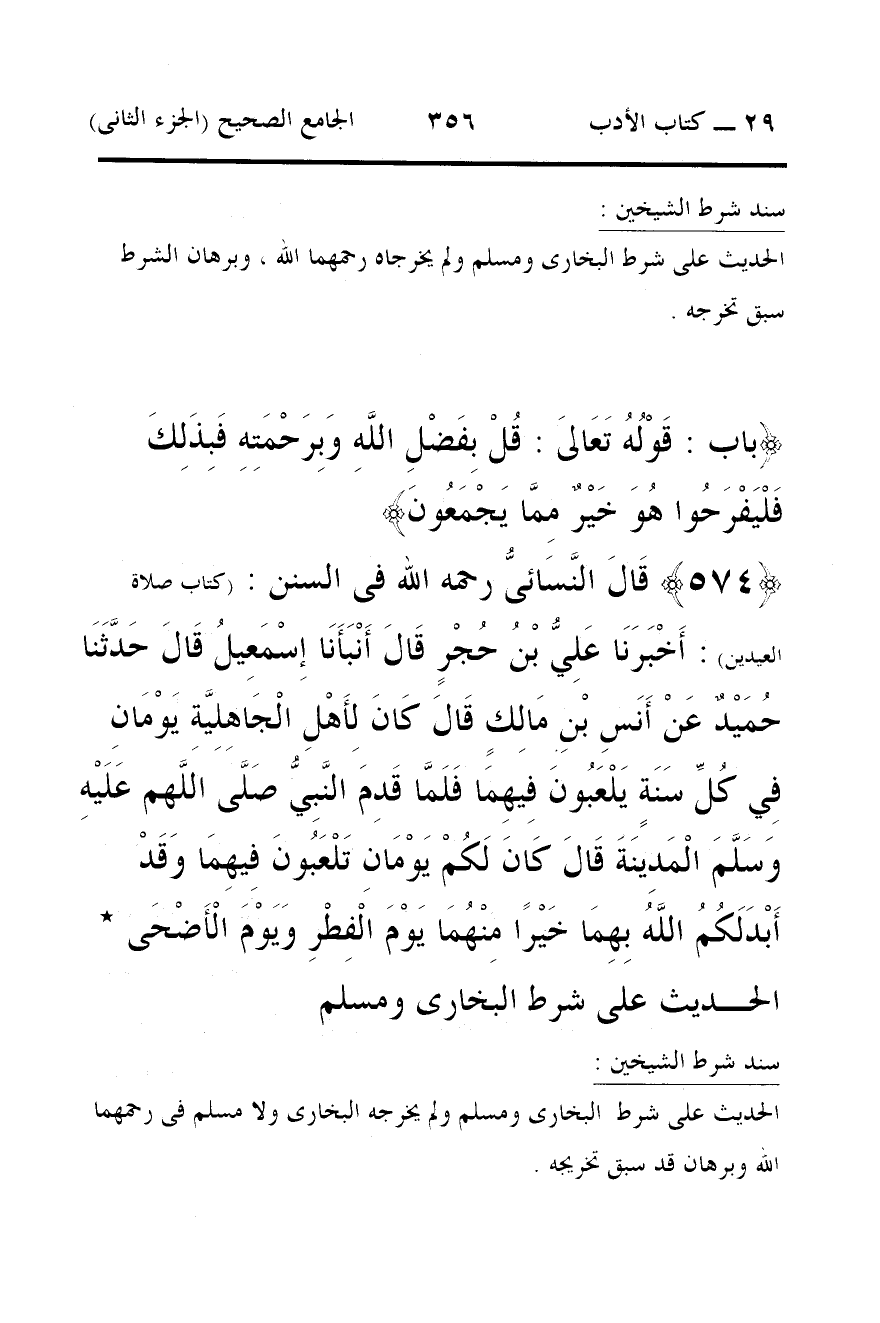 ٢٩ ــ كتاب الأدب ٣٥٦ الجامع الصحيح (الجزء الثانى)
سند شرط الشيخين :
الحديث على شرط البخارى ومسلم ولم يخرجاه رحمهما الله ، وبرهان الشرط
سبق تخرجه .
﴿باب : قَوْلُهُ تَعَالىَ : قُلْ بِفَضْلِ اللَّهِ وَبِرَحْمَتِهِ فَبِذَلِكَ
فَلْيَفْرَحُوا هُوَ خَيْرٌ مِمَّا يَجْمَعُونَ﴾
﴿٥٧٤﴾ قَالَ النَّسَائىُّ رحمه الله فى السنن : (كتاب صلاة
العيدين) : أَخْبَرَنَا عَلِيُّ بْنُ حُجْرٍ قَالَ أَنْبَأَنَا إِسْمَعِيلُ قَالَ حَدَّثَنَا
حُمَيْدٌ عَنْ أَنَسِ بْنِ مَالِكٍ قَالَ كَانَ لِأَهْلِ الْجَاهِلِيَّةِ يَوْمَانِ
فِي كُلِّ سَنَةٍ يَلْعَبُونَ فِيهِمَا فَلَمَّا قَدِمَ النَّبِيُّ صَلَّى اللَّهم عَلَيْهِ
وَسَلَّمَ الْمَدِينَةَ قَالَ كَانَ لَكُمْ يَوْمَانِ تَلْعَبُونَ فِيهِمَا وَقَدْ
أَبْدَلَكُمُ اللَّهُ بِهِمَا خَيْرًا مِنْهُمَا يَوْمَ الْفِطْرِ وَيَوْمَ الْأَضْحَى *
الحـــديث على شرط البخارى ومسلم
سند شرط الشيخين :
الحديث على شرط البخارى ومسلم ولم يخرجه البخارى ولا مسلم فى رحمهما
الله وبرهان قد سبق تخريجه .